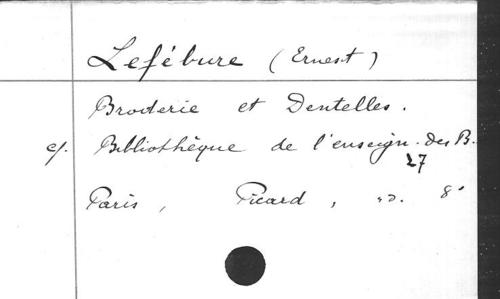 Lefébure (Ernest)
Broderie et Dentelles.
cf. Bibliothèque de l'enseign. des B.
27
Paris, Picard, sd. 8°